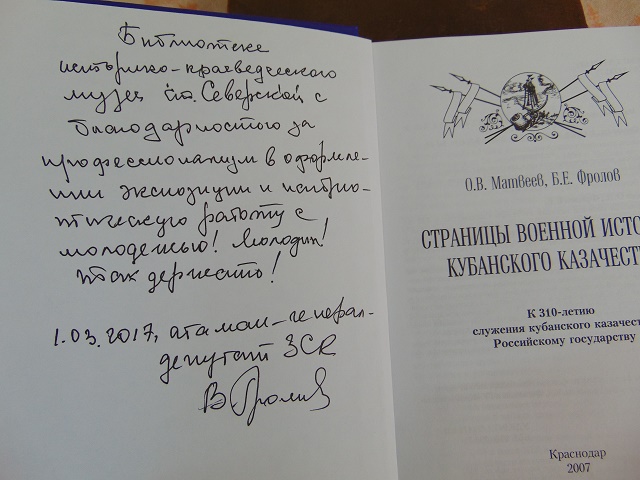 Библиотеке
историко-краеведческого
музея ст. Северской с
благодарностью за
профессионализм в оформле-
нии экспозиции и патрио-
тическую работу с
молодежью! Молодцы!
Так держать!
1.03.2017, атаман-генерал-
депутат ЗСК
В Громов
О.В. Матвеев, Б.Е. Фролов
СТРАНИЦЫ ВОЕННОЙ ИСТО
КУБАНСКОГО КАЗАЧЕСТ
К 310-летию
служения кубанского казачест
Российскому государству
Краснодар
2007